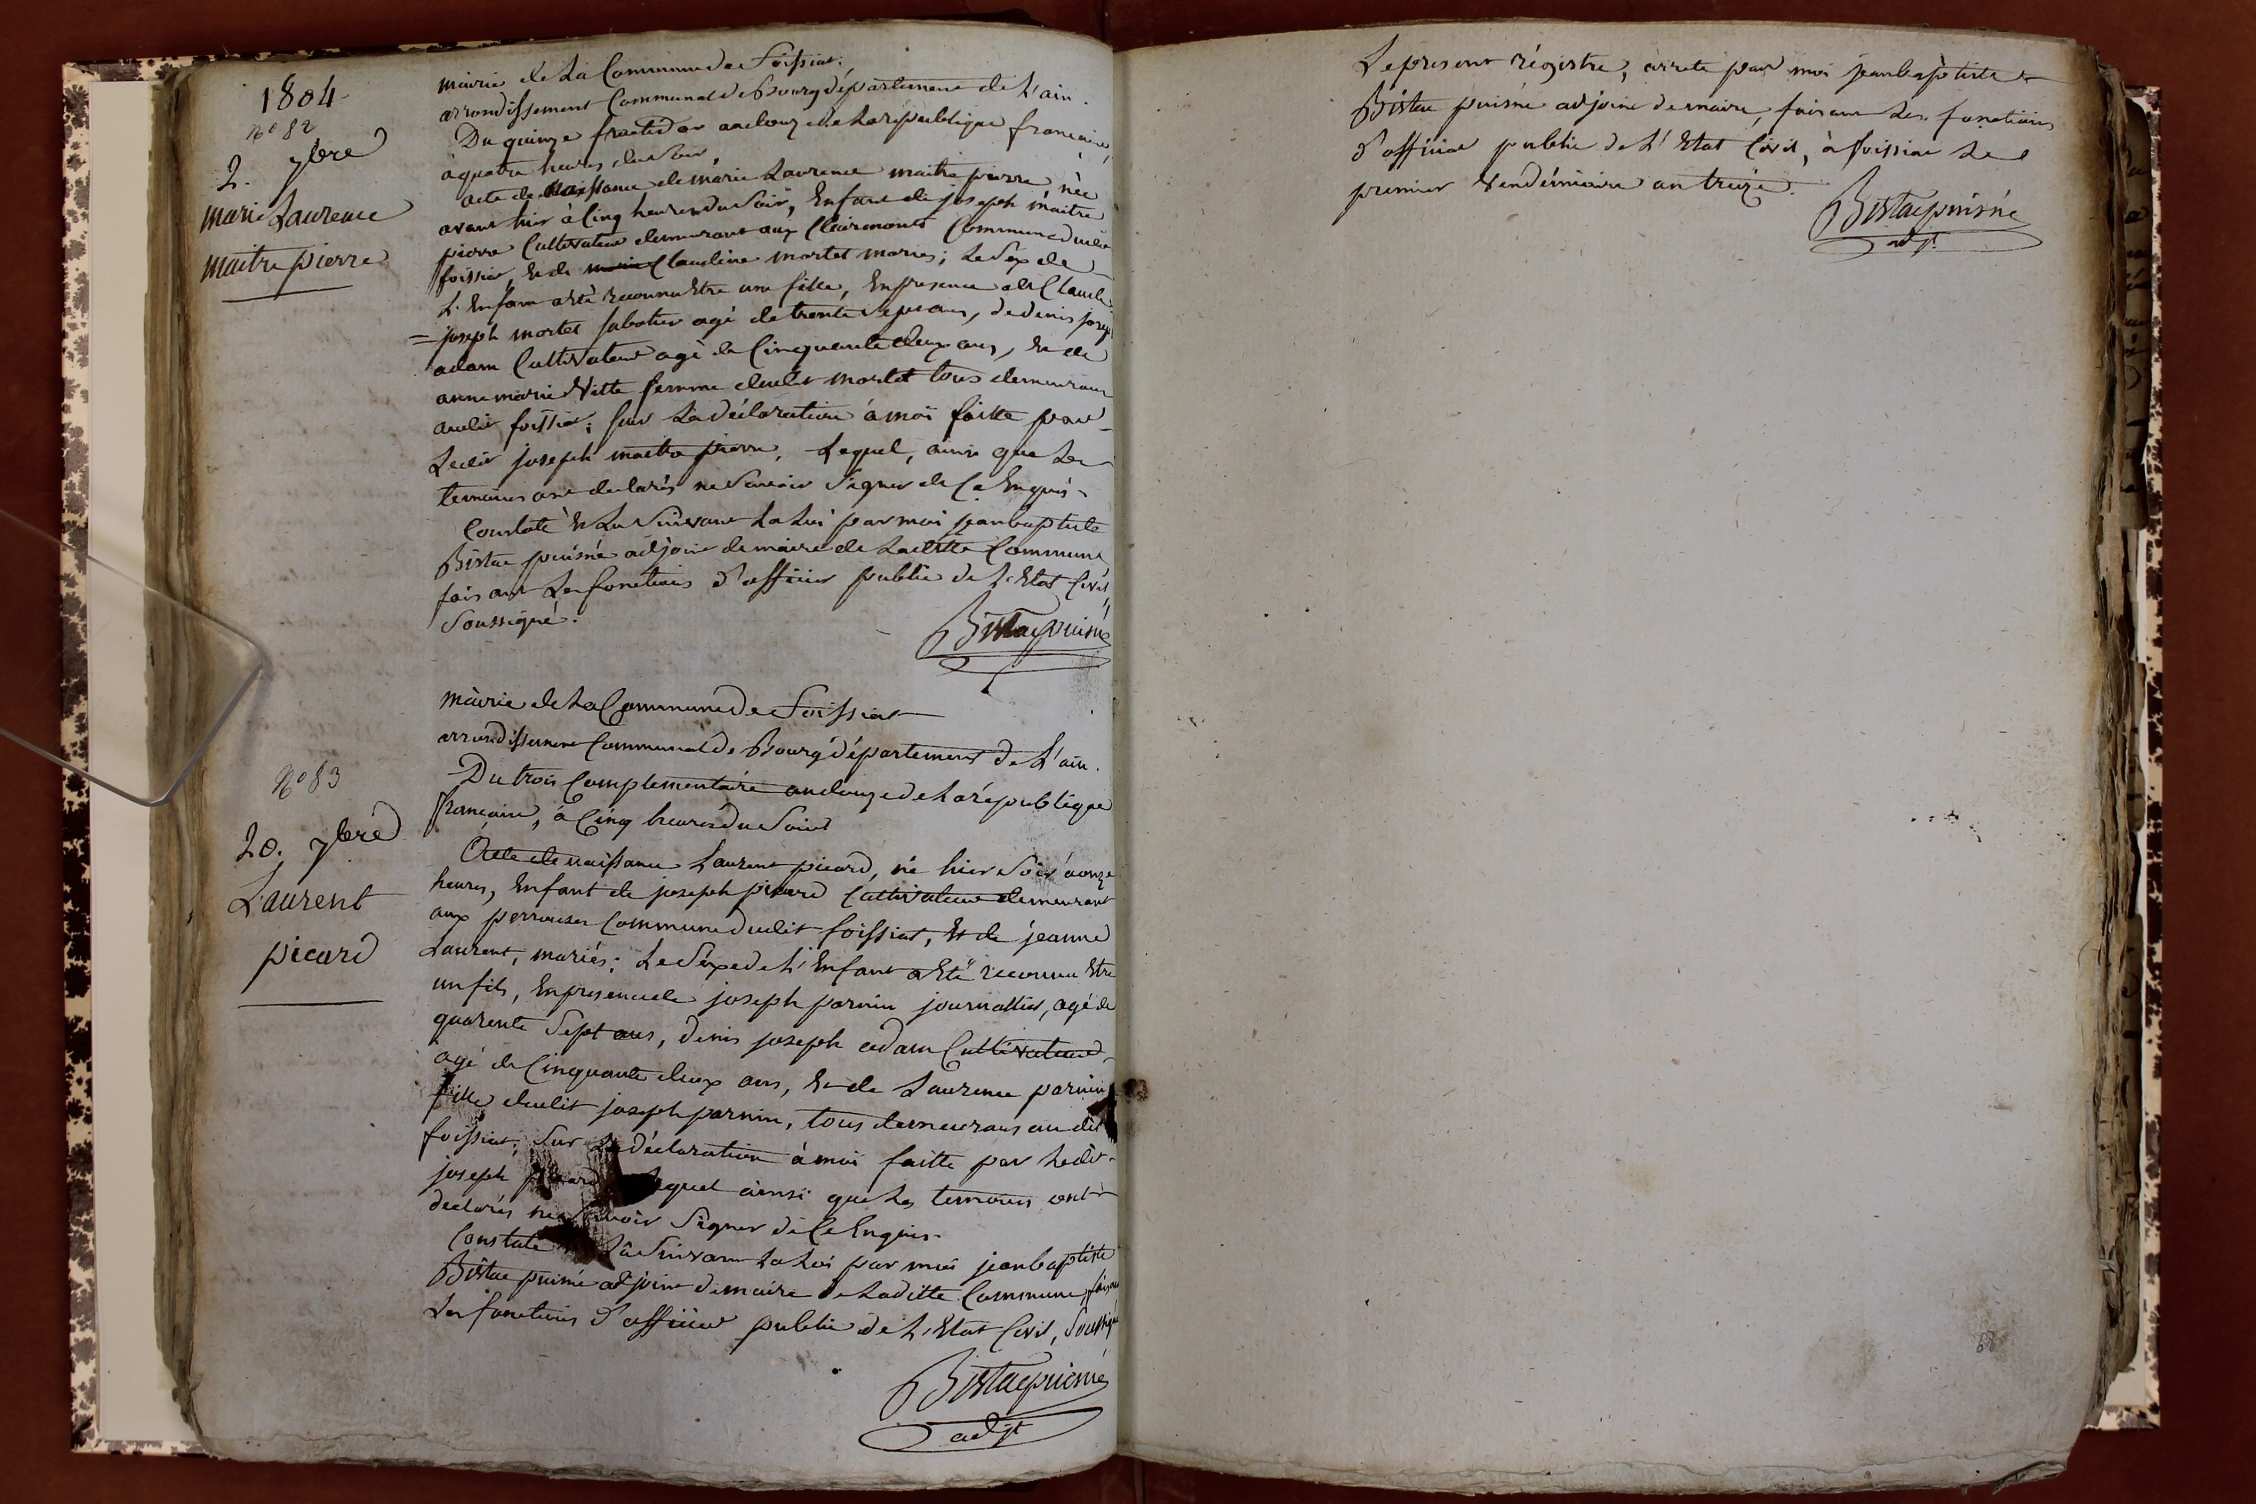 1804
N° 82
2. 7bre
Marie Laurence
maitre pierre
mairie de La Commune de foissiat.
arrondissement Communal de Bourg département de L'ain.
Du quinze fructidor an douze de La république francaise,
à quatre heures du soir,
acte de naissance de marie Laurence maitre pierre, née
avant hier à Cinq heures du soir, Enfant de joseph maitre
pierre Cultivateur demeurant aux Clairmonts Commune dudit
foissiat, Et de Claudine mortet mariés; Le Sexe de
L'Enfant a Eté reconnu Etre une fille, En presence de Claude
= joseph mortet sabotier agé de trente sept ans, de denis joseph
adam Cultivateur agé de Cinquante deux ans, Et de
anne marie Vitte femme dudit mortet tous demeurans
audit foissiat; sur La déclaration à moi faitte par
Ledit joseph maitre pierre, Lequel, ainsi que Les
temoins ont declarés ne Savoir Signer de Ce Enquis.
Constaté Et Lu Suivant La Loi par moi jean baptiste
Bistac puisné adjoint de maire de Laditte Commune,
faisant Les fonctions d'officier public de L'Etat Civil,
Soussigné.
Bistac puisné
N° 83
20. 7bre
Laurent
picard
mairie de La Commune de foissiat
arrondissement Communal de Bourg département de L'ain.
Du trois Complementaire an douze de La république
francaise, à Cinq heures du Soir
Acte de naissance Laurent picard, né hier Soir à onze
heures, Enfant de joseph picard Cultivateur demeurant
aux perrouses Commune dudit foissiat, Et de jeanne
Laurent, mariés; Le Sexe de L'Enfant a Eté reconnu Etre
un fils, En presence de joseph parnin journallier, agé de
quarente Sept ans, denis joseph adam Cultivateur
agé de Cinquante deux ans, Et de Laurence parnin
fille dudit joseph parnin, tous demeurans au dit
foissiat; Sur La déclaration à moi faitte par Ledit
joseph picard Lequel ainsi que Les temoins ont
declarés ne Savoir Signer de Ce Enquis.
Constaté Lû Suivant La Loi par moi jean baptiste
Bistac puisné adjoint de maire de Laditte Commune, faisant
Les fonctions d'officier public de L'Etat Civil, Soussigné
Bistac puisné
adjt
Le present régistre, arreté par moi jean baptiste
Bistac puisné adjoint de maire, faisant Les fonctions
d'officier public de L'Etat Civil, à foissiat Le
premier Vendémiaire an treize.
Bistac puisné
adjt